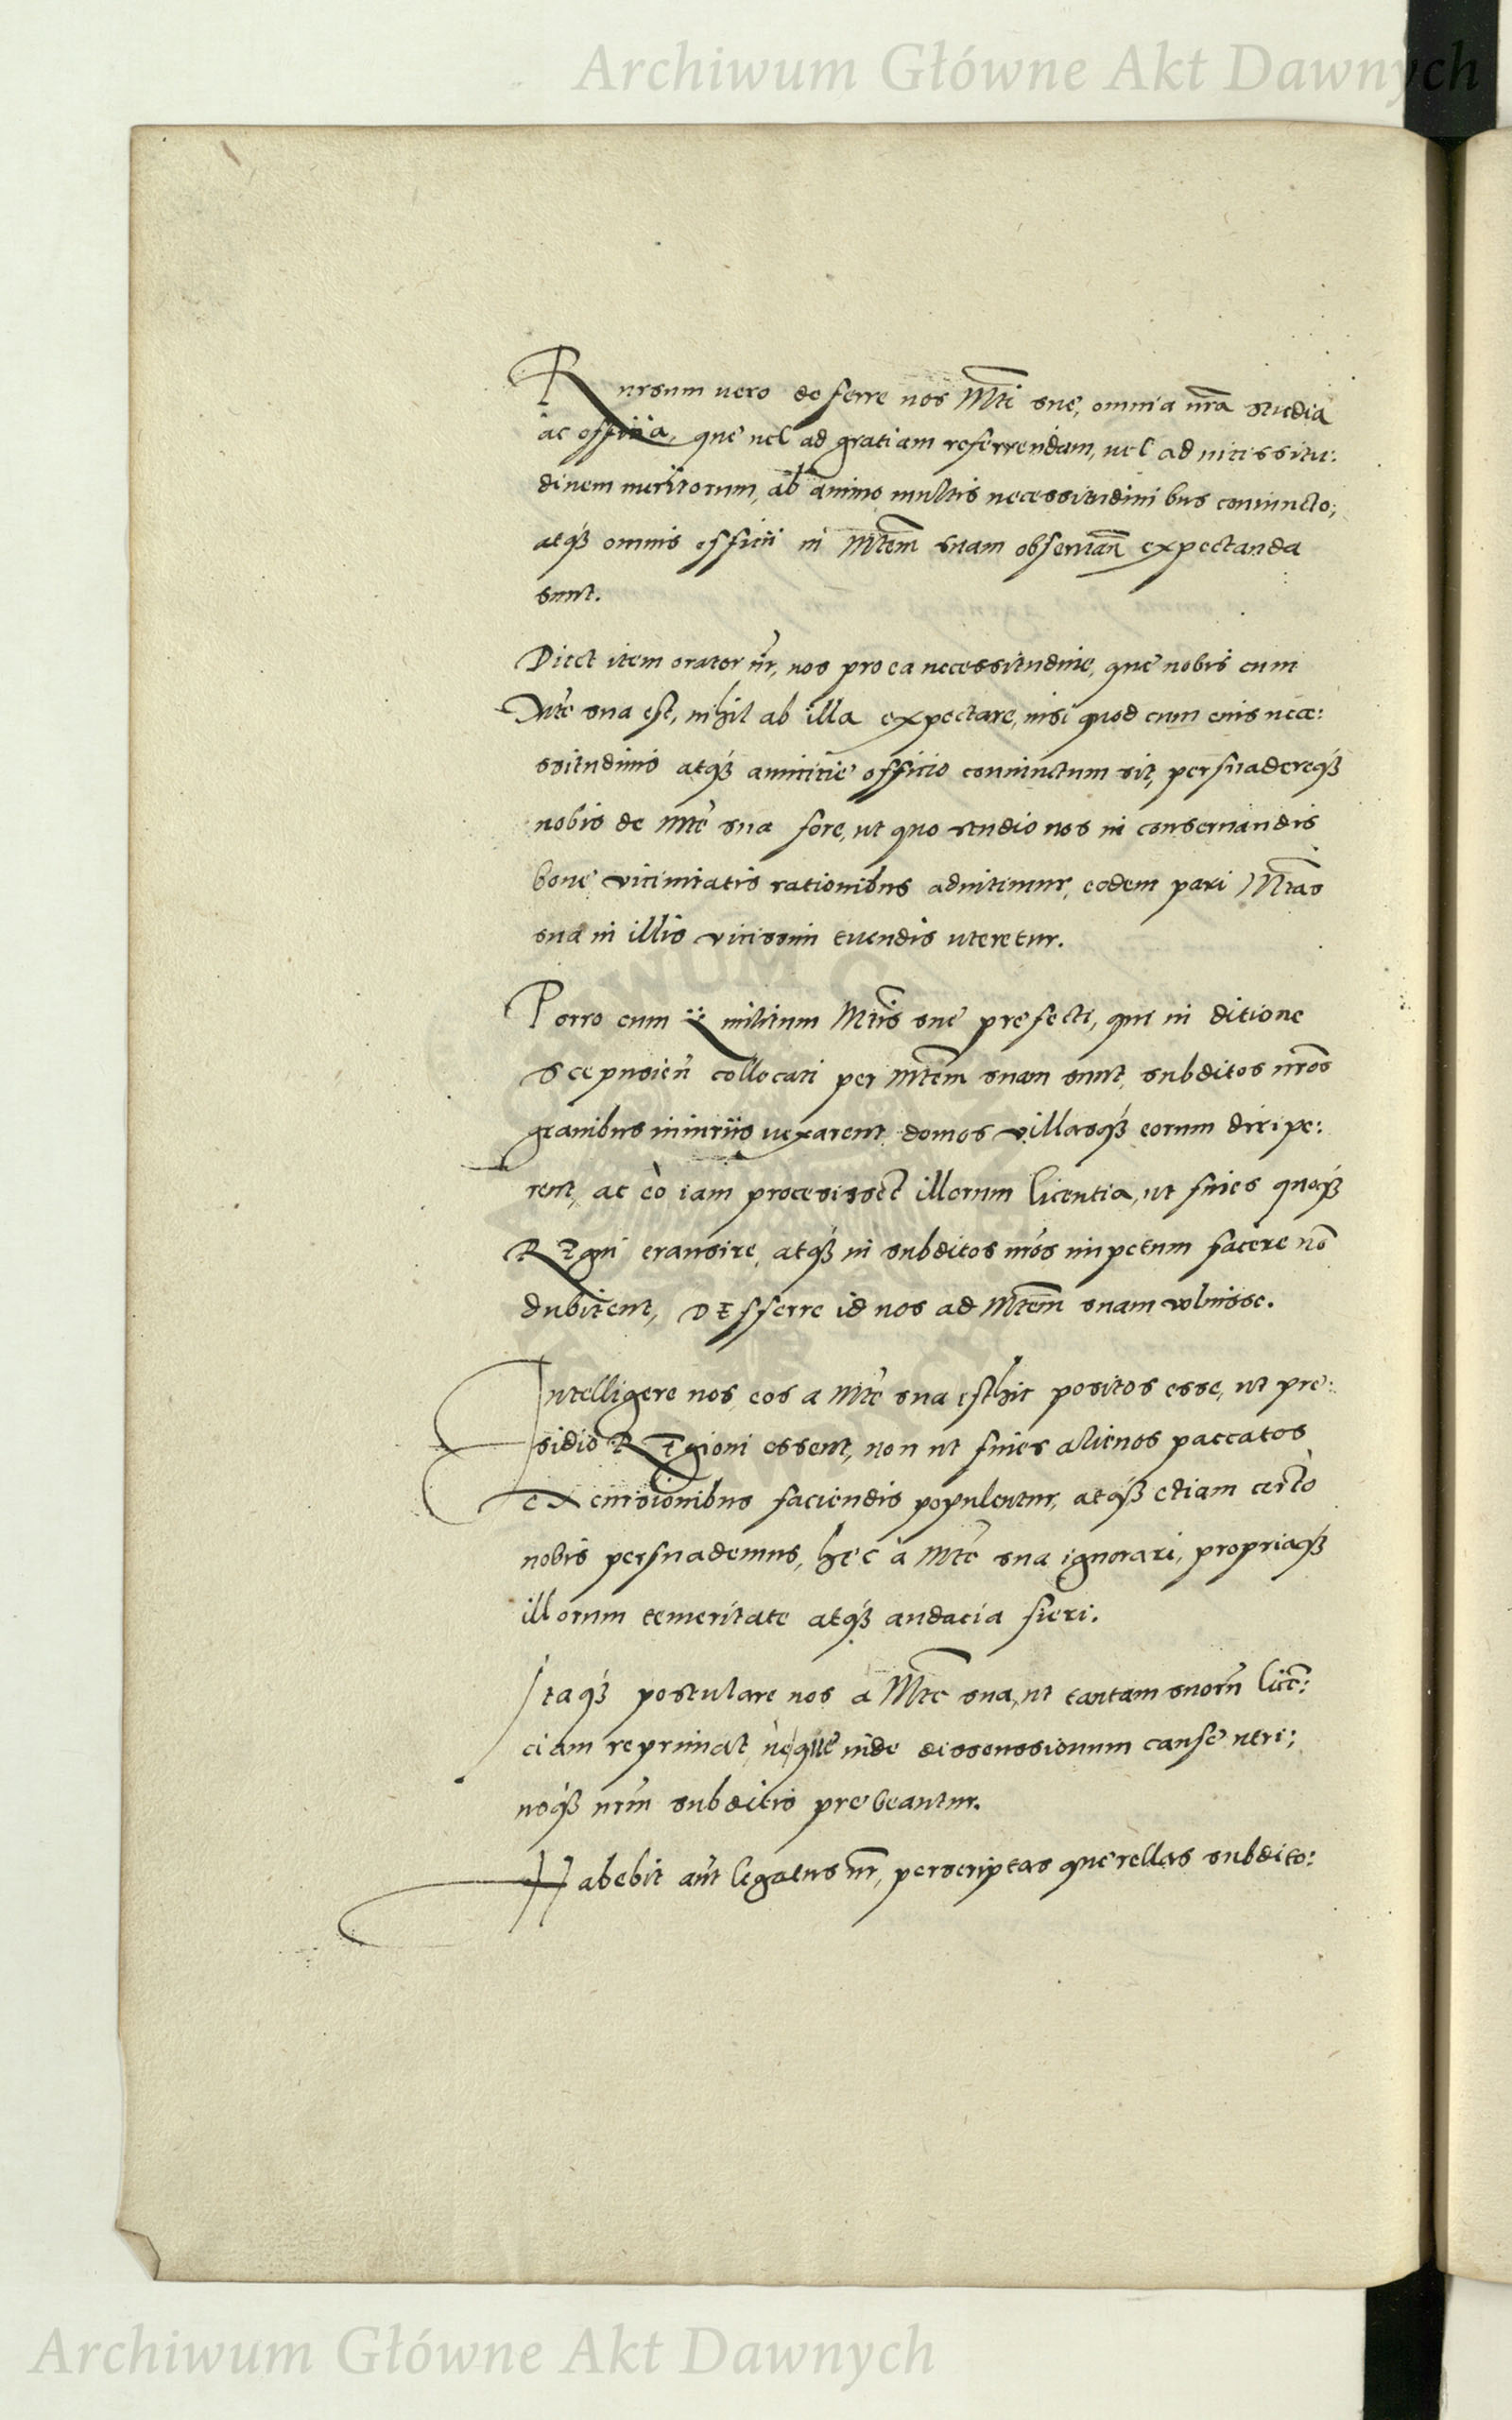 Archiwum Główne Akt Dawnych
Rursum uero deferre nos Mti sue, omnia nra studia
ac officia, que uel ad gratiam referrendam, uel ad necessitu:
dinem meritorum, ab animo multis necessitudinibus coniuncto,
atq3 omnis officii in Mtem suam obseruan expectanda
sunt.
Dicet item orator nr, nos pro ea necessitudine, que nobis cum
Mte sua est, nihil ab illa expectare, nisi quod cum eius nece:
ssitudinis atq3 amicitie officio coniunctum sit, persuadereq3
nobis de Mte sua fore, ut quo studio nos in conseruandis
bone vicinitatis rationibus adnitimur, eodem pari Mtas
sua in illis vicissim tuendis uteretur.
Porro cum ii militum Mtis sue prefecti, qui in ditione
Scepusien collocati per Mtem suam sunt, subditos nros
grauibus iniuriis uexarent, domos villasq3 eorum diripe:
rent, ac eò iam processisset illorum licentia, ut fines quoq3
Regni transire, atq3 in subditos nros impetum facere non
dubitent, Defferre id nos ad Mtem suam voluisse.
Intelligere nos, eos a Mte sua isthic positos esse, ut pre:
sidio Regioni essent, non ut fines alienos paccatos
excursionibus faciendis populentur, atq3 etiam certò
nobis persuademus, hec à Mte sua ignorari, propriaq3
illorum temeritate atq3 audacia fieri.
Itaq3 postulare nos a Mte sua, ut tantam suorn licen:
ciam reprimat, neque inde dissenssionum cause utri:
usq3 nrm subditis prebeantur.
Habebit aut legatus nr, perscriptas querellas subdito:
Archiwum Główne Akt Dawnych